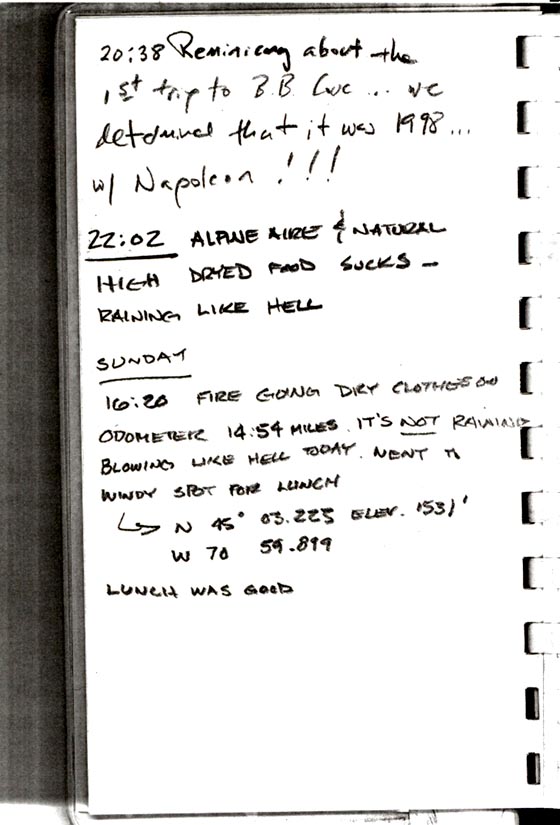 20:38 Reminicing about the
1st trip to B.B. Cove... we
determined that it was 1998...
w/ Napoleon!!!
22:02 ALPINE AIRE & NATURAL
HIGH DRYED FOOD SUCKS –
RAINING LIKE HELL
SUNDAY
16:20 FIRE GOING DRY CLOTHES ON
ODOMETER 14:54 MILES. IT'S NOT RAINING
BLOWING LIKE HELL TODAY. WENT
WINDY SPOT FOR LUNCH
↳ N 45° 03.225 ELEV. 1531'
W 70 59.899
LUNCH WAS GOOD